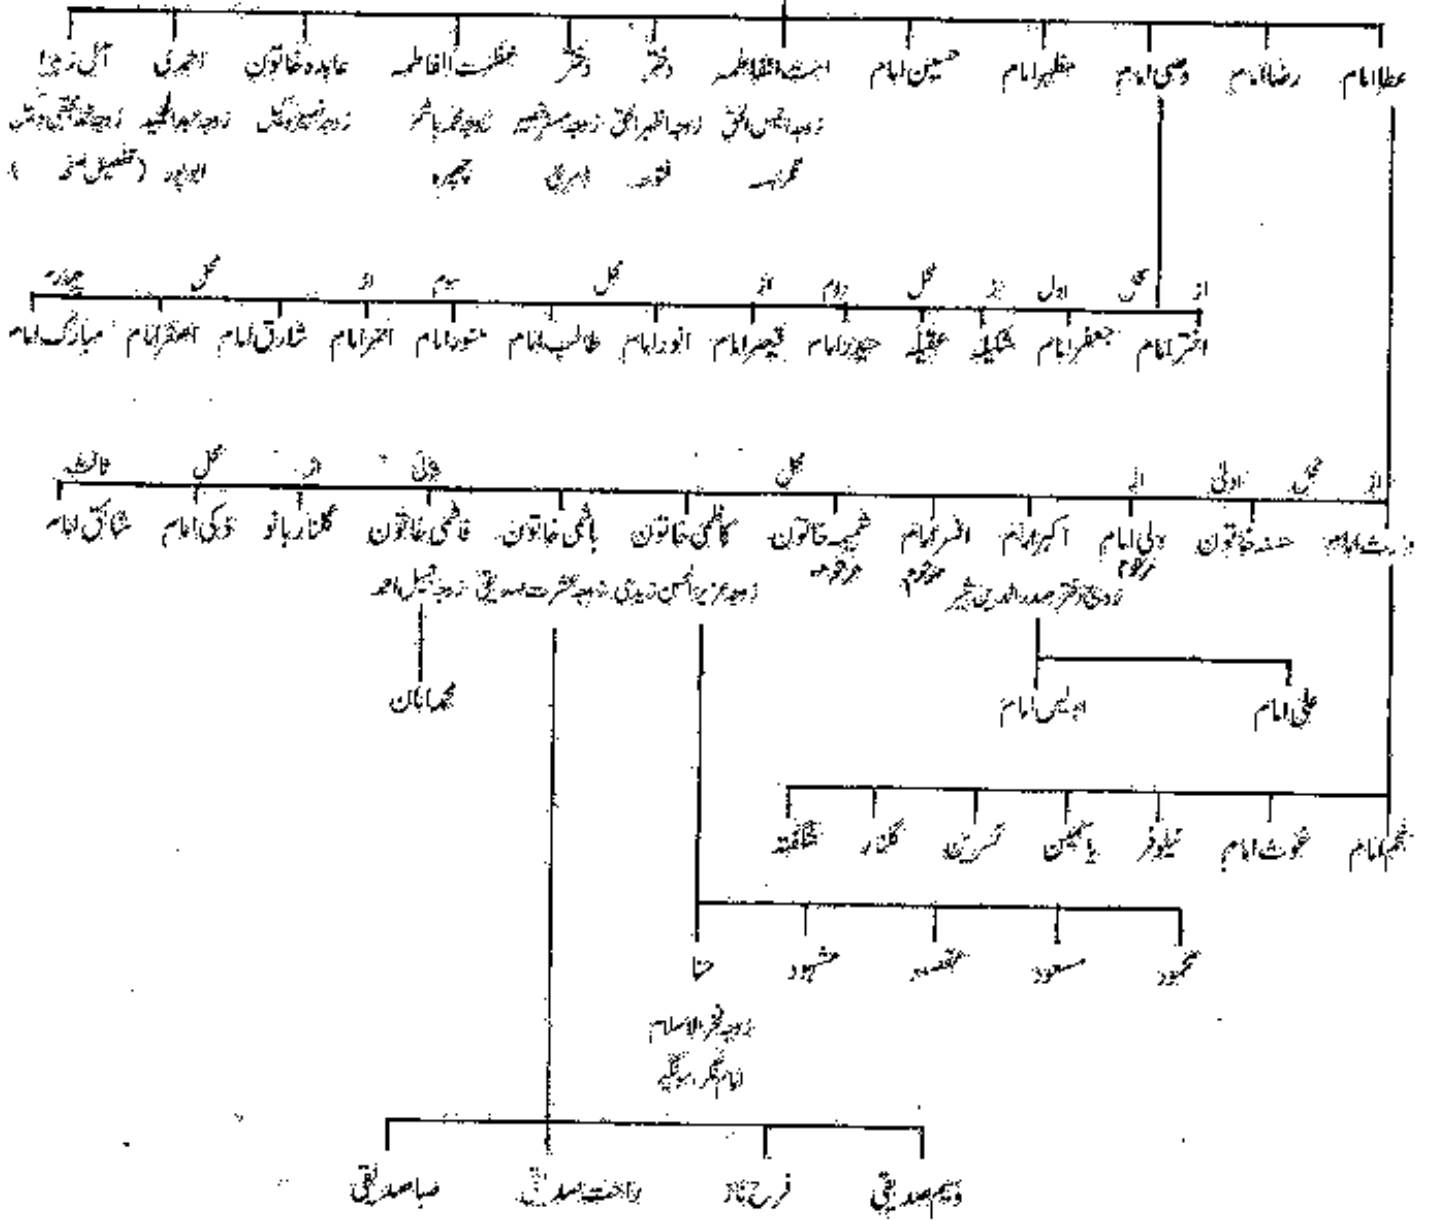 عطا امام رضا امام وصی امام مظہر امام حسین امام امت الفاطمہ دختر دختر عظمت الفاطمہ عابدہ خاتون احمدی آل زہرا
زوجہ انیس الحق زوجہ اظہر الحق زوجہ مسٹر شبیر زوجہ محمد ہاشم زوجہ نصیر وکیل زوجہ عبدالحمید زوجہ
فتوحہ چھپرہ (تفصیل صفحہ )
از محل اول از محل دوم از محل سوم از محل چہارم
اختر امام جعفر امام شکیلہ عقیلہ حیدر امام قیصر امام انور امام طالب امام منور امام امام شارق امام اصغر امام مبارک امام
از محل اولیٰ از محل ثانی از محل ثالث
وارث امام حسنہ خاتون ولی امام اکبر امام افسر امام شمیمہ خاتون کاظمی خاتون ہاشمی خاتون فاطمی خاتون گلنار بانو ذکی امام شائق امام
مرحوم مرحوم مرحومہ
زوج دختر صدر الدین زوجہ عزیز الحسن زیدی زوجہ عشرت صدیقی زوجہ جمیل احمد
علی امام امام محمد ابان
نجم امام غوث امام نیلوفر یاسمین نسرین گلنار شگفتہ
محمود مسعود مقصود مشہود حنا
زوجہ فخر الاسلام
امام نگر
وسیم صدیقی فرح ناز راحت صدیقی صبا صدیقی